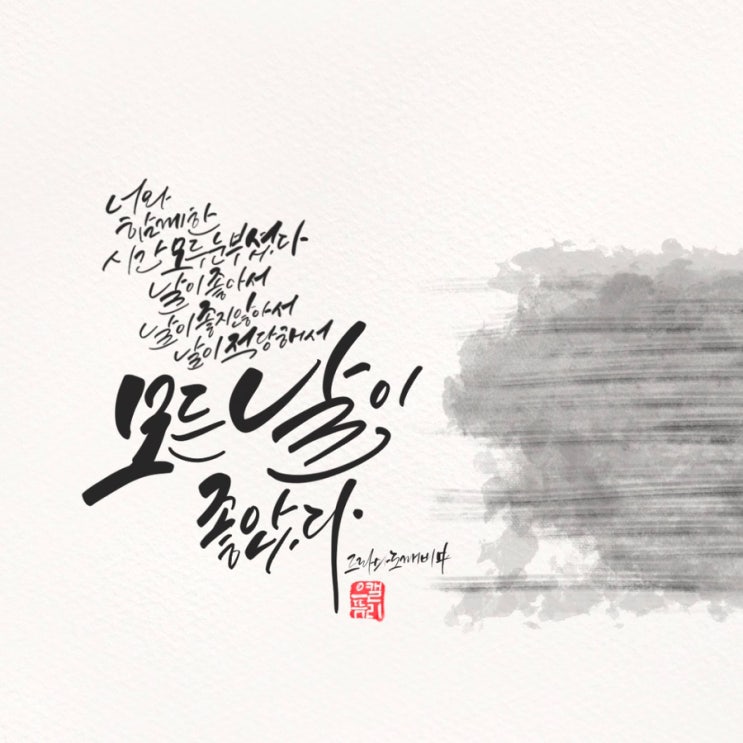 너와
함께한
시간 모두 눈부셨다
날이 좋아서
날이 좋지않아서
날이 적당해서
모든 날이
좋았다.
도깨비 中